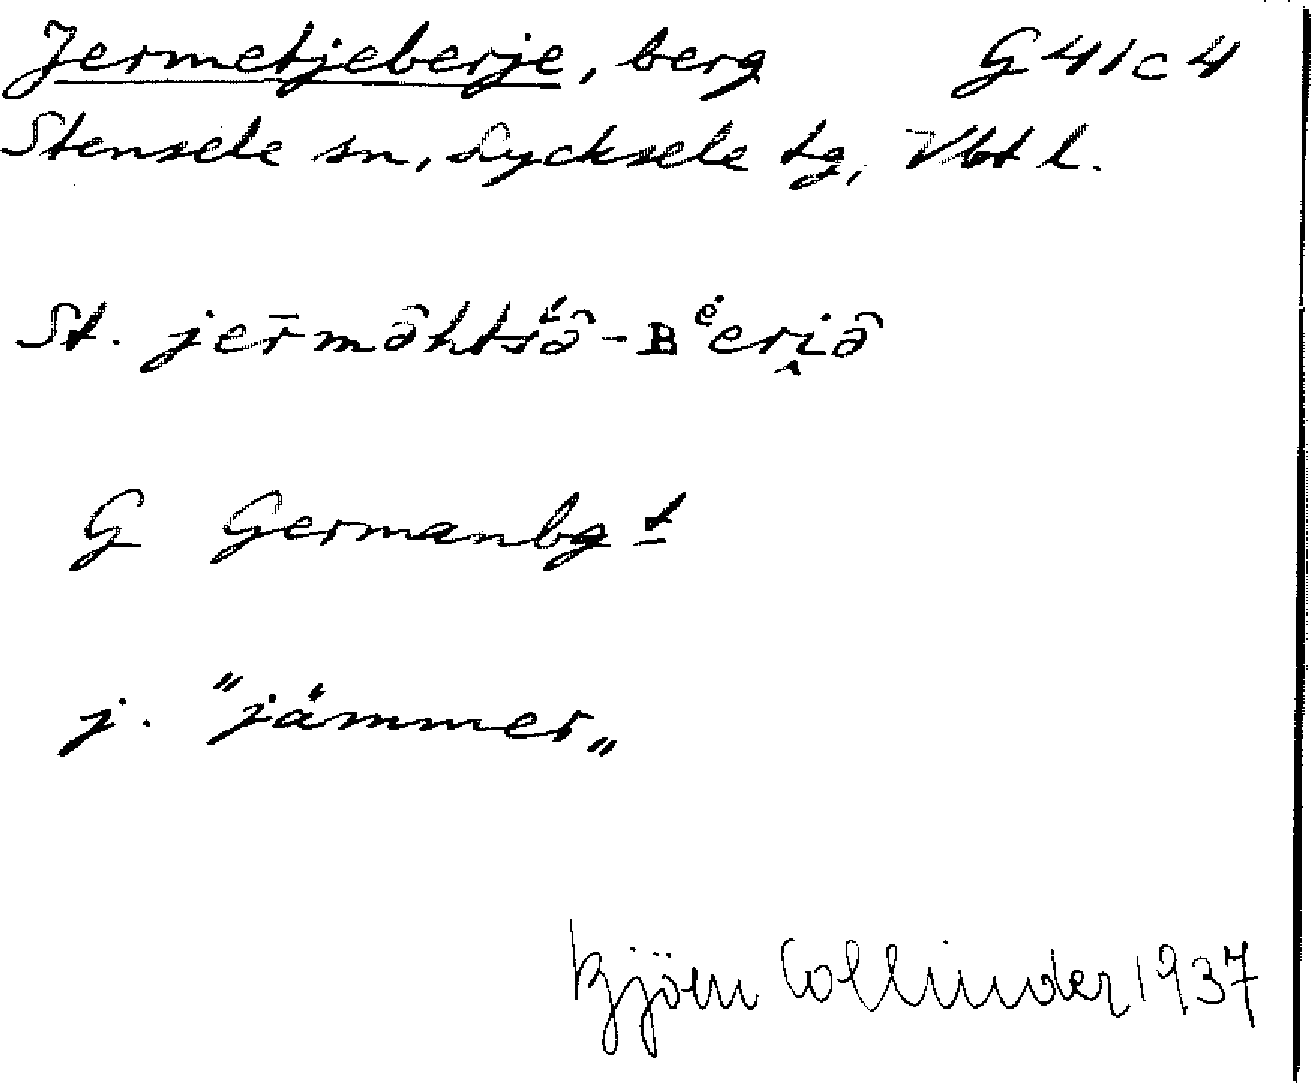 Jermetjeberje, berg G 41 c 4
Stensele sn, Lycksele tg, Vbt l.
St. jer̄mâhtśâ-Bėeri̭â
G Germanbg t
j. "jämmer„
Björn Collinder 1937